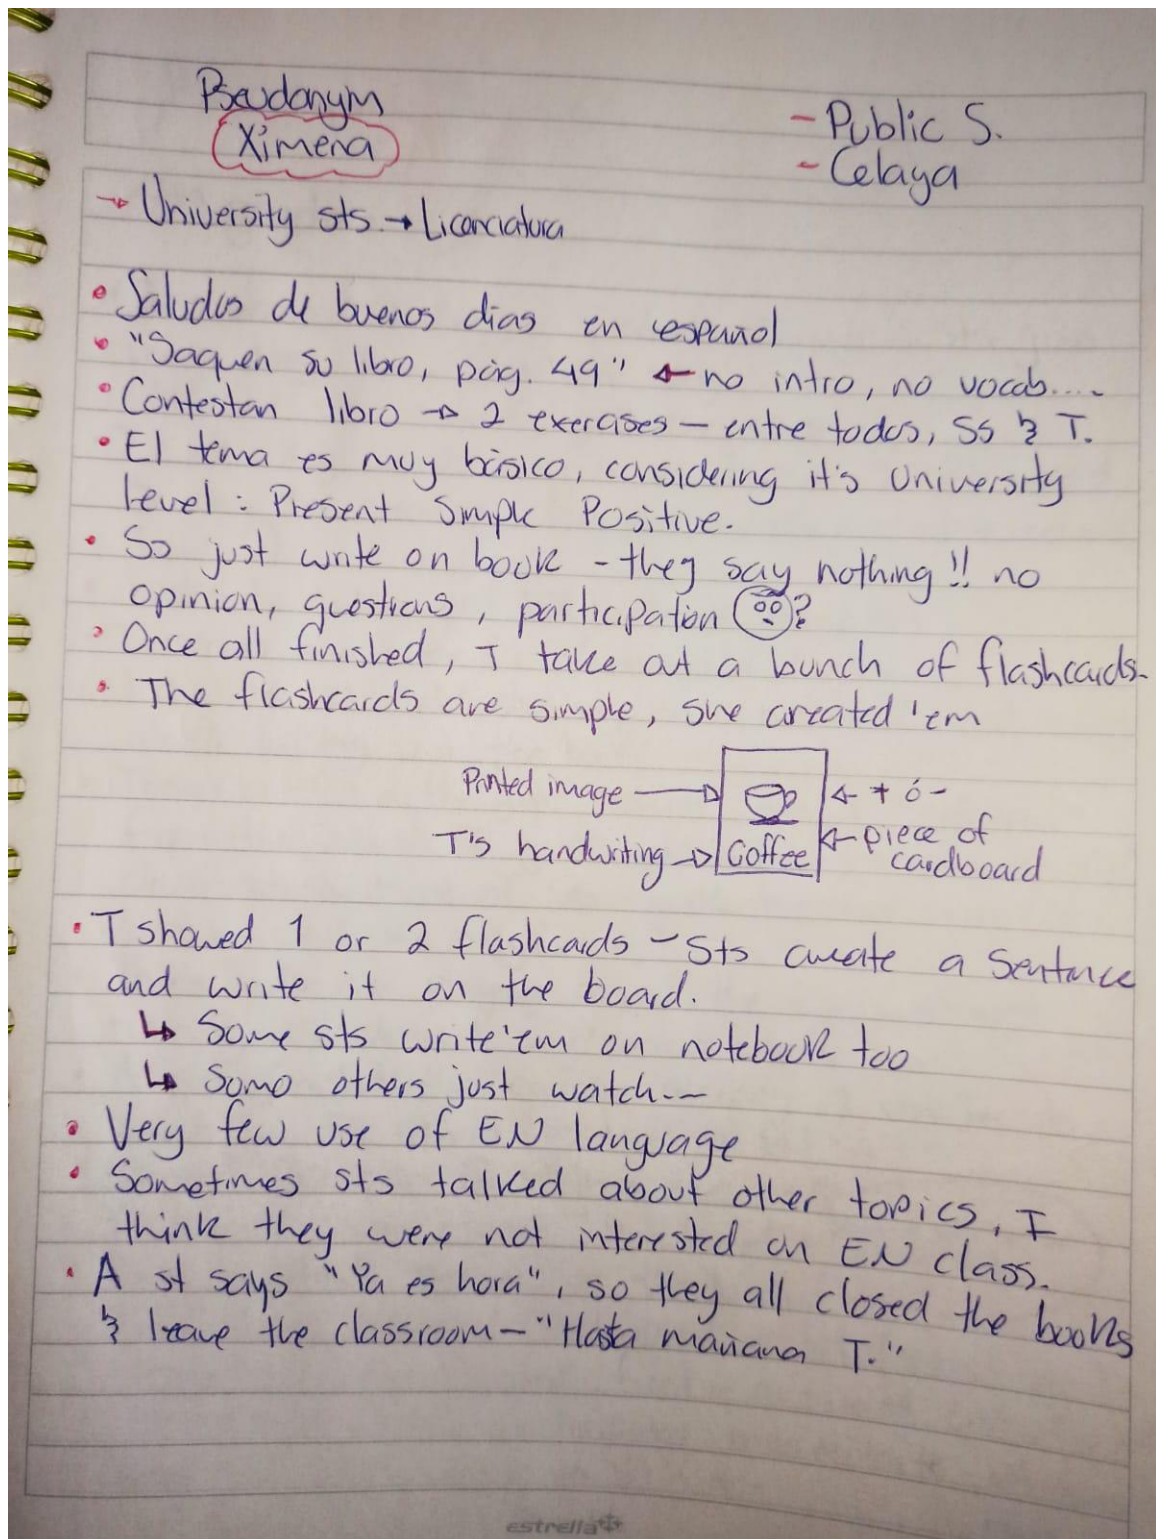 Pseudonym
Ximena
- Public S.
- Celaya
→ University sts. → Licenciatura
• Saludos de buenos días en español
• "Saquen su libro, pág. 49" ← no intro, no vocab....
• Contestan libro → 2 exercises – entre todos, Ss & T.
• El tema es muy básico, considering it's University
level : Present Simple Positive.
• So just write on book - they say nothing!! no
opinion, questions, participation ?
• Once all finished, T take out a bunch of flashcards.
• The flashcards are simple, she created 'em
Printed image → ← + ó -
T's handwriting → Coffee ← piece of
cardboard
• T showed 1 or 2 flashcards – Sts create a sentence
and write it on the board.
↳ Some sts write'em on notebook too
↳ Some others just watch --
• Very few use of EN language
• Sometimes sts talked about other topics, I
think they were not interested on EN class.
• A st says "Ya es hora", so they all closed the books
& leave the classroom – "Hasta mañana T."
estrella